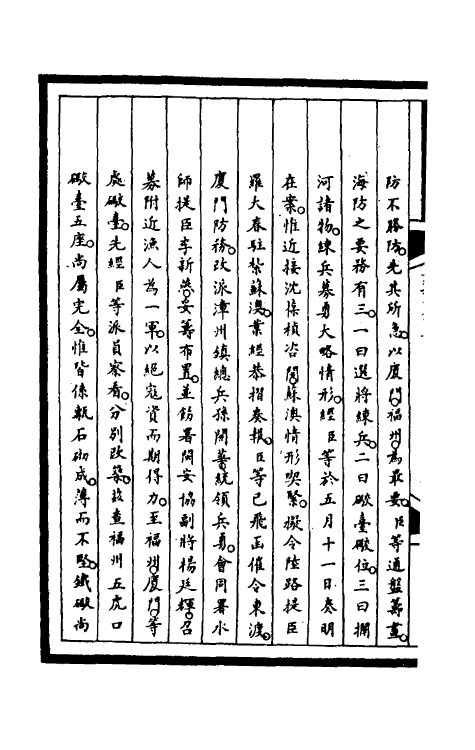 防不勝防。先其所急。以廈門。福州。為最要。臣等通盤籌畫。
海防之要務有三。一曰選將練兵。二曰礮臺礮位。三曰攔
河諸物。練兵募勇大略情形。經臣等於五月十一日奏明
在案。惟近接沈葆楨咨。開蘇澳情形喫緊。擬令陸路提臣
羅大春駐紮蘇澳。業經恭摺奏報。臣等已飛函催令東渡。
廈門防務。改派漳州鎮總兵孫開華。統領兵勇。會同署水
師提臣李新燕。妥籌布置。並飭署閩安協副將楊廷輝。召
募附近漁人為一軍。以絕寇資而期得力。至福州。廈門。等
處礮臺。先經臣等派員察看。分別改築。茲查福州五虎口
礮臺五座。尚屬完全。惟皆係甎石砌成。薄而不堅。鐵礮尚